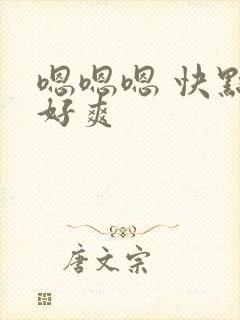 嗯嗯嗯 快點
好爽
唐文宗